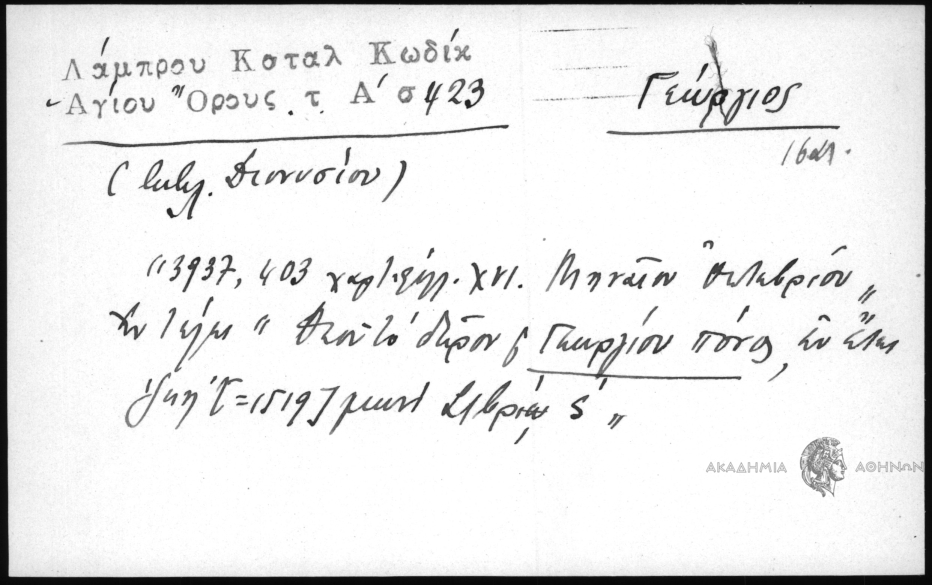 Λάμπρου Καταλ Κωδίκ
Αγίου Ὄρους . τ Α' σ 423
Γεώργιος
(Διονυσίου)
"3937, 403 χαρτ. φύλλ. XVI. Μηναῖον Ὀκτωβρίου"
Ἐν τέλει " Θεοῦ τὸ δῶρον Γεωργίου πόνος, ἐν ἔτει
[=1519] μηνὶ ς´ "
ΑΚΑΔΗΜΙΑ ΑΘΗΝΩΝ